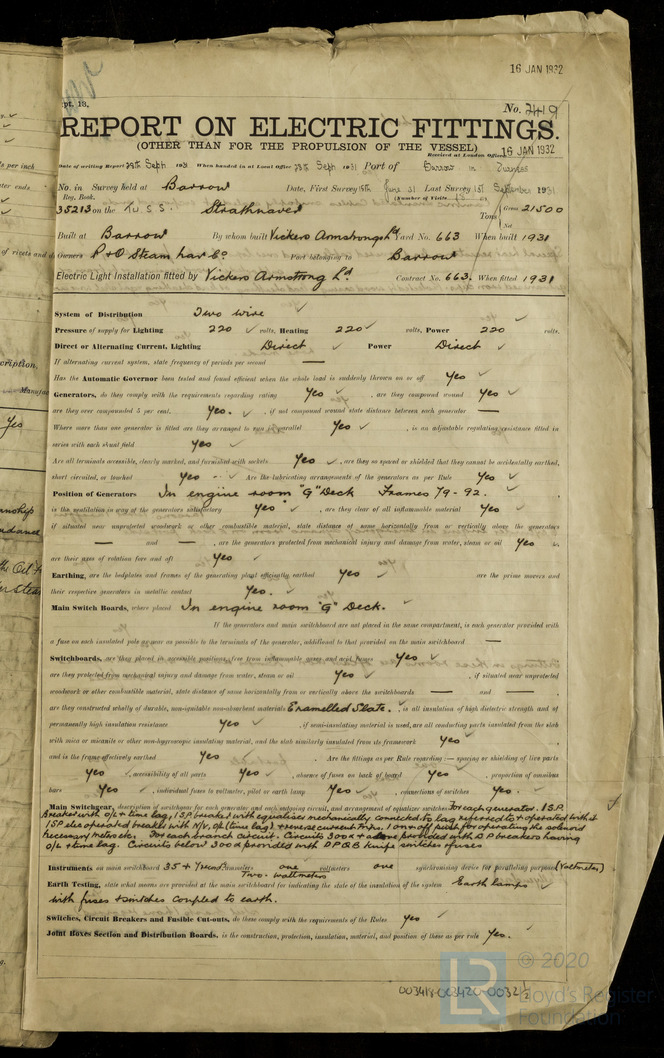 16 JAN 1932
pt. 13.
No. 2419
REPORT ON ELECTRIC FITTINGS.
(OTHER THAN FOR THE PROPULSION OF THE VESSEL)
Received at London Office 16 JAN 1932
Date of writing Report 29th Sept 1931 When handed in at Local Office 29th Sept 1931 Port of Barrow in Furness
No. in Survey held at Barrow Date, First Survey 15th June 31 Last Survey 1st September 1931
Reg. Book. (Number of Visits 13)
35213 on the T.W.S.S. Strathnaver Tons Gross 21500
Net
Built at Barrow By whom built Vickers Armstrongs Ld Yard No. 663 When built 1931
Owners P & O Steam Nav Co Port belonging to Barrow
Electric Light Installation fitted by Vickers Armstrong Ld Contract No. 663. When fitted 1931
System of Distribution Two wire
Pressure of supply for Lighting 220 volts, Heating 220 volts, Power 220 volts.
Direct or Alternating Current, Lighting Direct Power Direct
If alternating current system, state frequency of periods per second —
Has the Automatic Governor been tested and found efficient when the whole load is suddenly thrown on or off Yes
Generators, do they comply with the requirements regarding rating Yes , are they compound wound Yes
are they over compounded 5 per cent. Yes. , if not compound wound state distance between each generator —
Where more than one generator is fitted are they arranged to run in parallel Yes , is an adjustable regulating resistance fitted in
series with each shunt field Yes
Are all terminals accessible, clearly marked, and furnished with sockets Yes , are they so spaced or shielded that they cannot be accidentally earthed,
short circuited, or touched Yes Are the lubricating arrangements of the generators as per Rule Yes
Position of Generators In engine room "G" Deck Frames 79 - 92.
is the ventilation in way of the generators satisfactory Yes , are they clear of all inflammable material Yes
if situated near unprotected woodwork or other combustible material, state distance of same horizontally from or vertically above the generators
— and — , are the generators protected from mechanical injury and damage from water, steam or oil Yes
are their axes of rotation fore and aft Yes
Earthing, are the bedplates and frames of the generating plant efficiently earthed Yes are the prime movers and
their respective generators in metallic contact Yes.
Main Switch Boards, where placed In engine room "G" Deck.
If the generators and main switchboard are not placed in the same compartment, is each generator provided with
a fuse on each insulated pole as near as possible to the terminals of the generator, additional to that provided on the main switchboard —
Switchboards, are they placed in accessible positions, free from inflammable gases and acid fumes Yes
are they protected from mechanical injury and damage from water, steam or oil Yes , if situated near unprotected
woodwork or other combustible material, state distance of same horizontally from or vertically above the switchboards — and —
are they constructed wholly of durable, non-ignitable non-absorbent materials Enamelled Slate. , is all insulation of high dielectric strength and of
permanently high insulation resistance Yes , if semi-insulating material is used, are all conducting parts insulated from the slab
with mica or micanite or other non-hygroscopic insulating material, and the slab similarly insulated from its framework Yes
and is the frame effectively earthed Yes Are the fittings as per Rule regarding :— spacing or shielding of live parts
Yes , accessibility of all parts Yes , absence of fuses on back of board Yes , proportion of omnibus
bars Yes , individual fuses to voltmeter, pilot or earth lamp Yes , connections of switches Yes.
Main Switchgear, description of switchgear for each generator and each outgoing circuit, and arrangement of equalizer switches For each generator. 1 S.P.
Breaker with o/l & time lag, 1 S.P. breaker with equaliser mechanically connected to lag referred to & operated with it
1 S.P. elec operated breaker with N/V, o/l (time lag) & reverse current trips. 1 on & off push for operating the solenoid
necessary meters etc. For each branch circuit. Circuits 300 a & above provided with D P breakers having
o/l & time lag. Circuits below 300 a provided with D P Q B knife switches & fuses
Instruments on main switchboard 35 ammeters one voltmeters one synchronising device for paralleling purposes (Voltmeter)
Two. wattmeters
Earth Testing, state what means are provided at the main switchboard for indicating the state of the insulation of the system Earth lamps
with fuses & switches coupled to earth.
Switches, Circuit Breakers and Fusible Cut-outs, do these comply with the requirements of the Rules Yes
Joint Boxes Section and Distribution Boards, is the construction, protection, insulation, material, and position of these as per rule Yes.
003418-003420-0032 1/2
© 2020
Lloyd's Register
Foundation
LR
per inch
ter ends.
of rivets and
cription,
Manufac
Yes